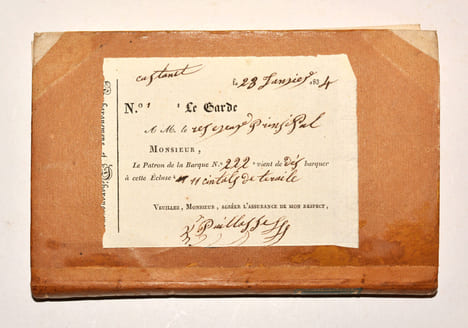 Castanet
le 23 Janvier 1834
N.º 1 Le Garde
A M. le receveur Prinsipal
MONSIEUR,
Le Patron de la Barque N.º 222 vient de dés barquer
à cette Écluse 11 cintals de teraile
VEUILLEZ, MONSIEUR, AGRÉER L'ASSURANCE DE MON RESPECT,